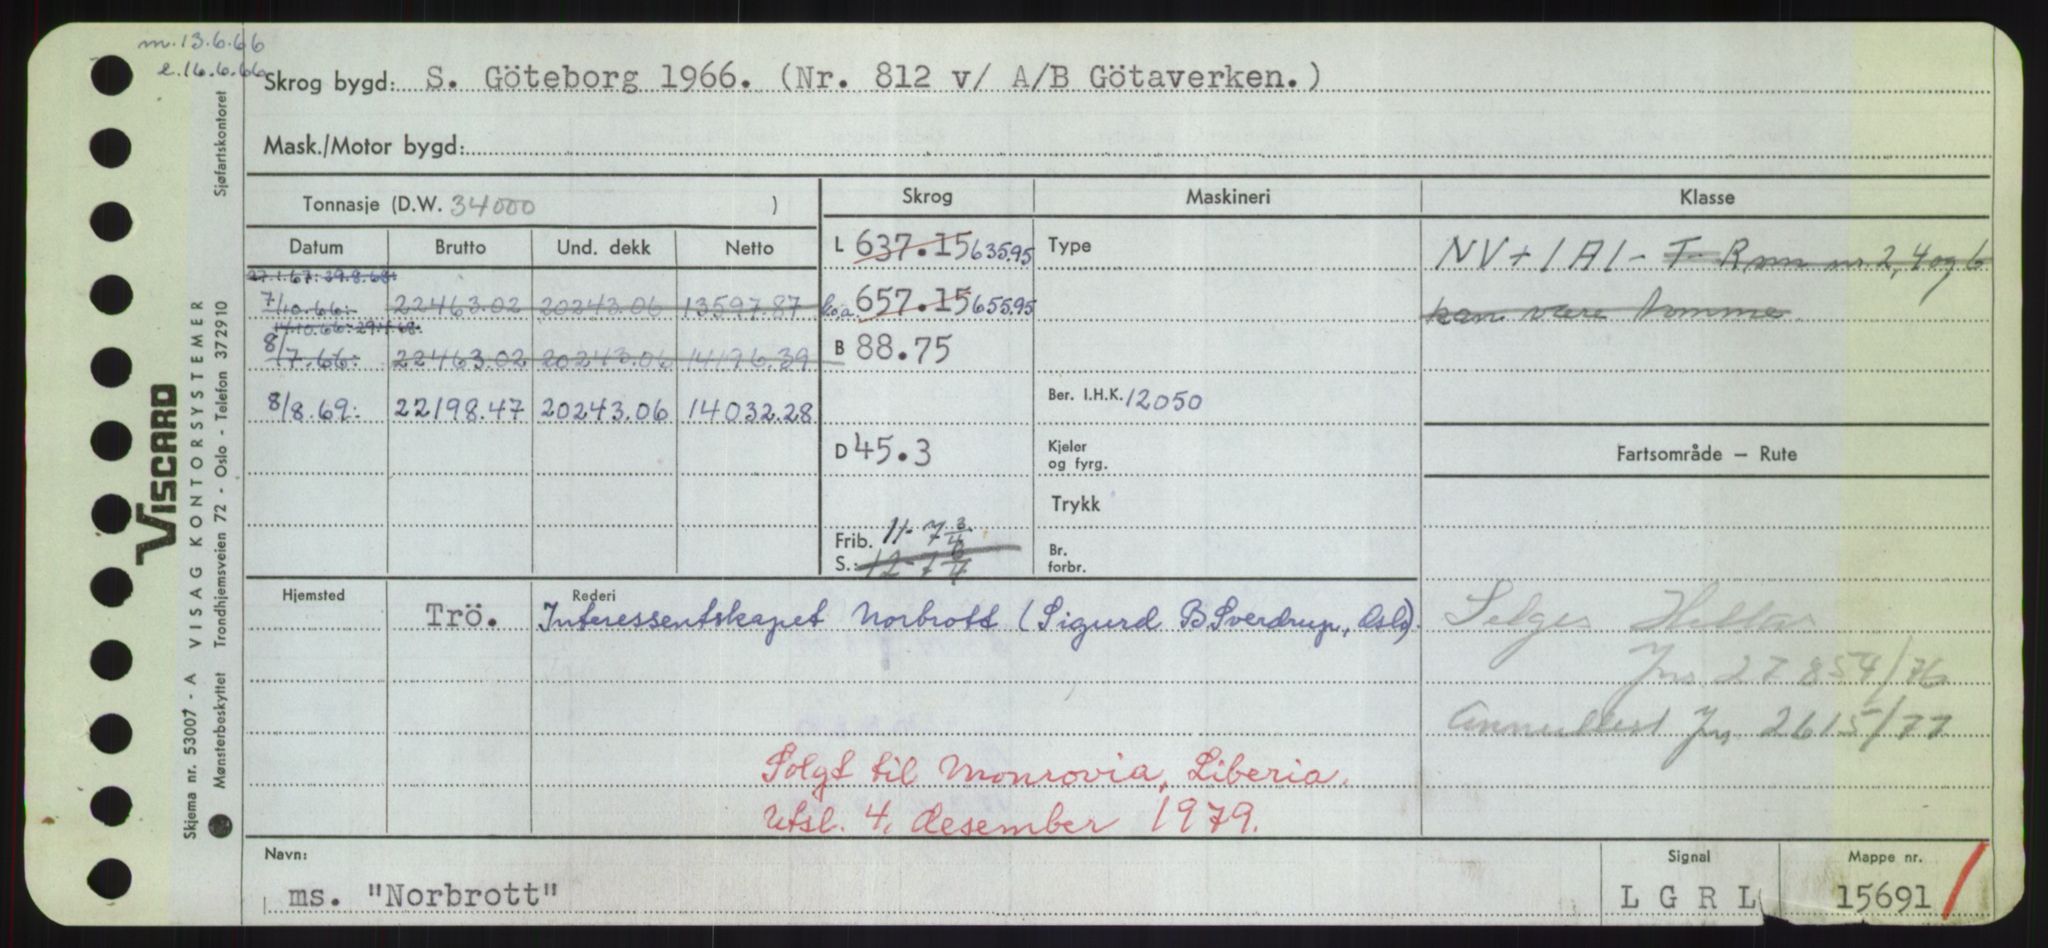 m. 13.6.66
e. 16.6.66
Skrog bygd: S. Göteborg 1966. (Nr. 812 v/ A/B Götaverken.)
Mask./Motor bygd:
Tonnasje (D.W. 34000 )
Skrog
Maskineri
Klasse
Datum Brutto Und. dekk Netto
27.1.67: 29.8.68:
7/10.66: 22463.02 20243.06 13597.87
14.10.66: 29.1.68:
8/7.66: 22463.02 20243.06 14196.39
8/8.69: 22198.47 20243.06 14032.28
L 637.15 635.95
lo.a. 657.15 655.95
B 88.75
D 45.3
Frib. 11-7 3/4
S. 12-7 3/4
Type
Ber. I.H.K. 12050
Kjeler
og fyrg.
Trykk
Br.
forbr.
NV + 1A1 - F - Rom nr 2, 4 og 6
kan være tomme
Fartsområde – Rute
Hjemsted
Rederi
Trö. Interessentskapet Norbrott (Sigurd B. Sverdrup, Oslo).
Selges Hellas
Jnr 27854/76
Annullert Jnr. 2615/77
Solgt til Monrovia, Liberia.
Utsl. 4. desember 1979.
Navn:
ms. "Norbrott"
Signal
L G R L
Mappe nr.
15691
VISCARD
VISAG KONTORSYSTEMER
Skjema nr. 53007 - A
Mønsterbeskyttet Trondhjemsveien 72 - Oslo - Telefon 372910
Sjøfartskontoret